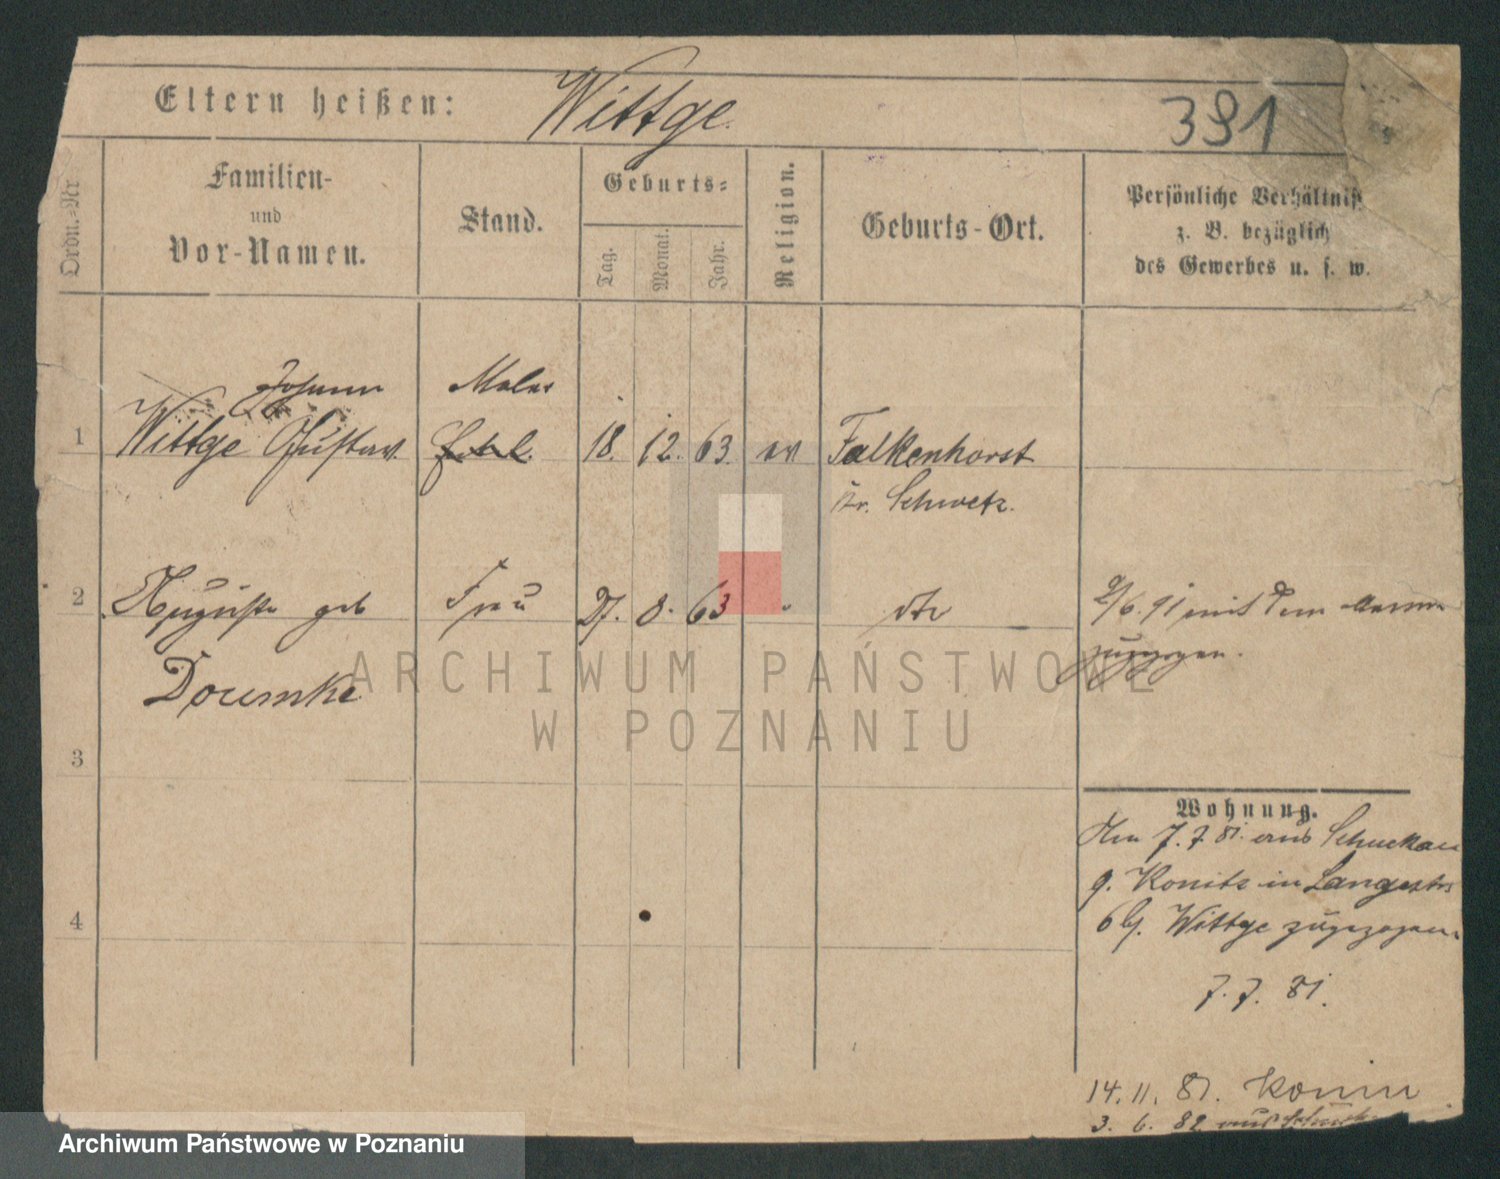 Eltern heißen: Wittge.
391
Ordn.=Nr
Familien-
und
Vor-Namen.
Stand.
Geburts=
Tag.
Monat.
Jahr.
Religion.
Geburts-Ort.
Persönliche Verhältniss
z. B. bezüglich
des Gewerbes u. s. w.
Johann Maler
1 Wittge Gustav. 18. 12. 63. ev Falkenhorst
Kr. Schwetz.
2 Auguste geb Frau 27. 8. 63 dto 2/6. 91 mit dem Manne
Doumke zugezogen.
3
Wohnung.
7. 7. 81. aus
g. Konitz in Langestr
4 6 b/. Wittge zugezogen.
7. 7. 81.
14. 11. 81. Konin
3. 6. 82 aus
ARCHIWUM PAŃSTWOWE
W POZNANIU
Archiwum Państwowe w Poznaniu